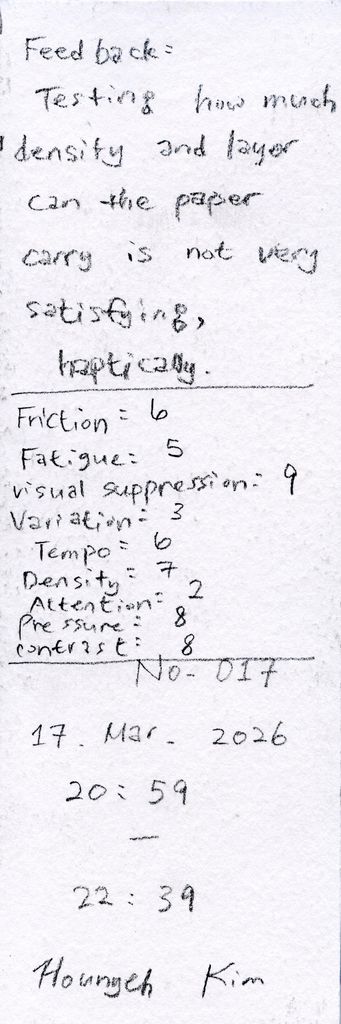 Feedback:
Testing how much
density and layer
can the paper
carry is not very
satisfying,
haptically.
Friction: 6
Fatigue: 5
visual suppression: 9
Variation: 3
Tempo: 6
Density: 7
Attention: 2
Pressure: 8
contrast: 8
No. 017
17. Mar. 2026
20:59
—
22:39
Houngeh Kim